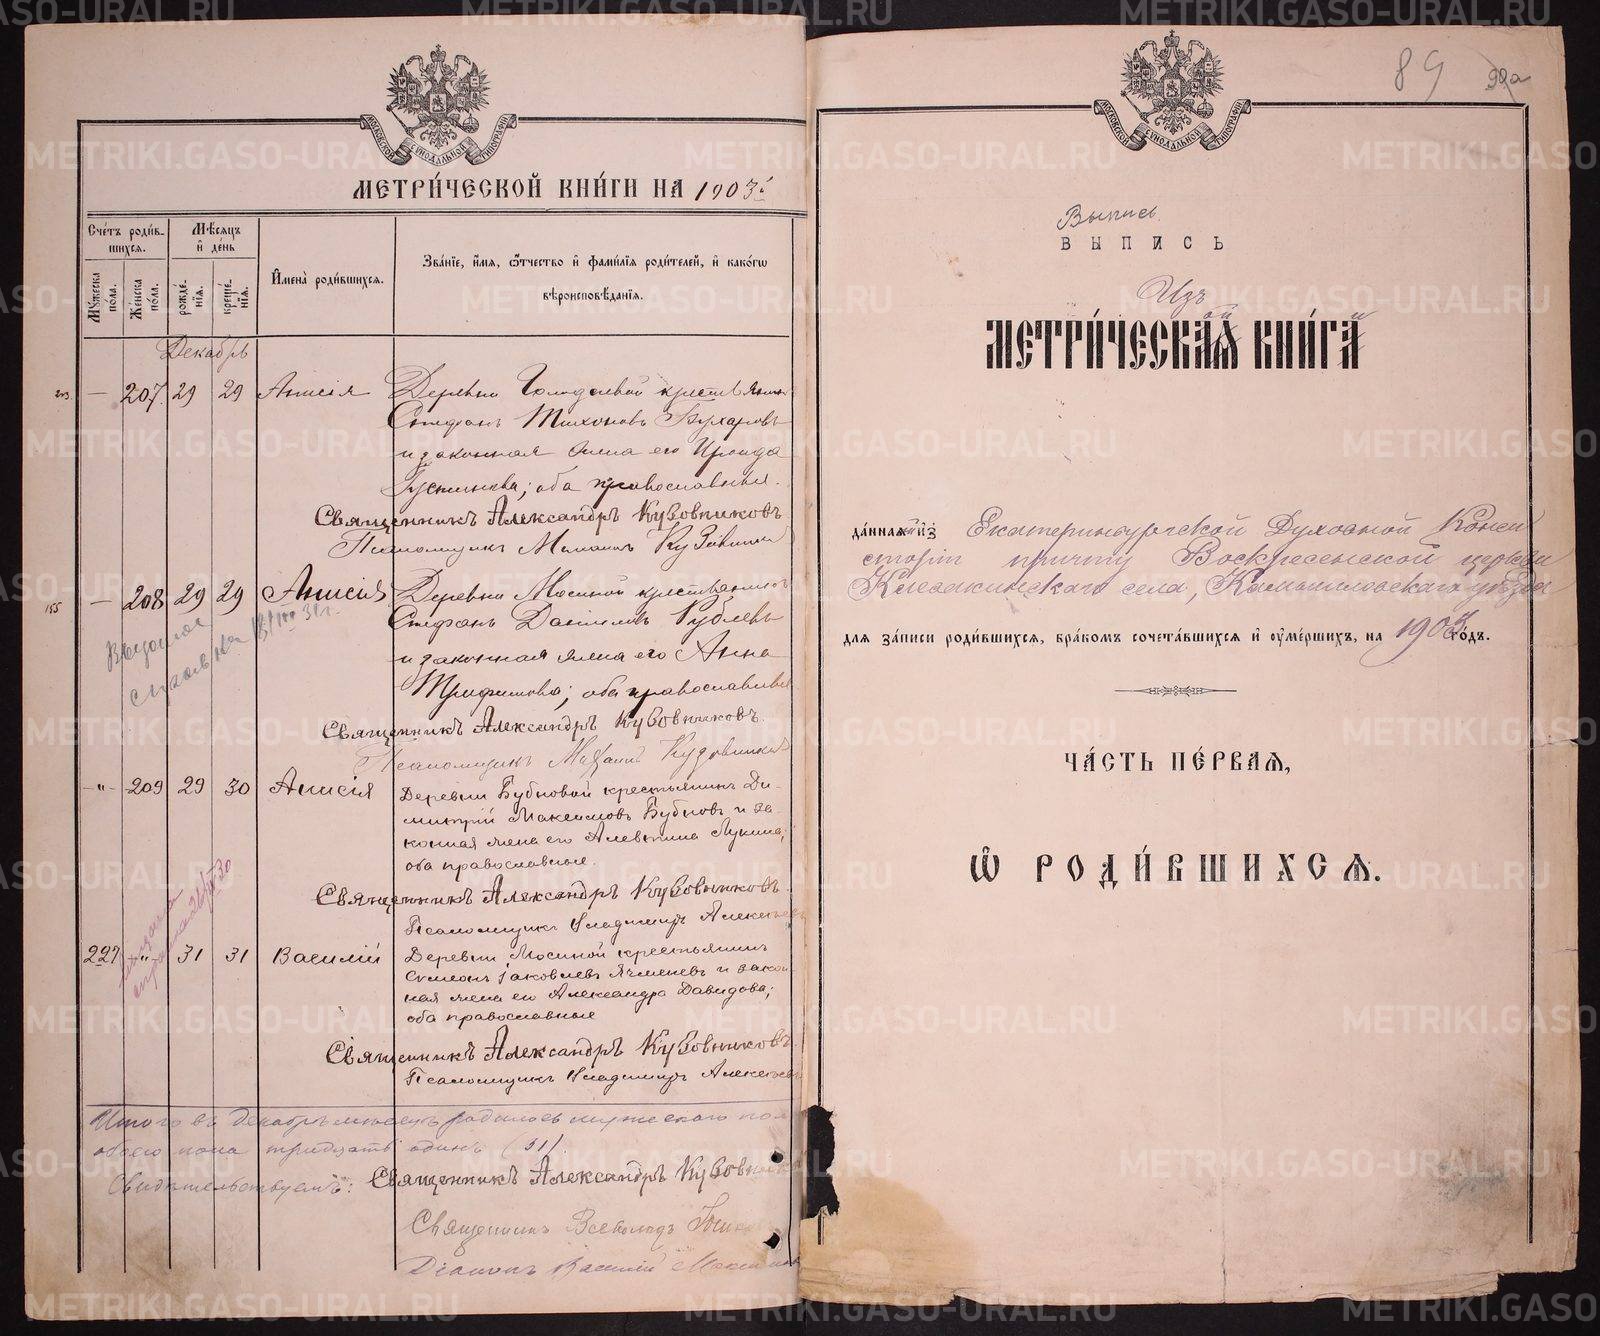 МОСКОВСКОЙ СѴНОДАЛЬНОЙ ТИПОГРАФІИ
МЕТРИ́ЧЕСКОЙ КНИ́ГИ НА 1903 й
Сче́тъ роди́в-
шихся.
Мѣ́сяцъ
и҆ де́нь
Мꙋ́жеска
по́ла.
Же́нска
по́ла.
рожде́-
нїѧ.
креще́-
нїѧ.
И҆мена̀ роди́вшихсѧ.
Зва́нїе, и҆́мѧ, ѻ҆́тчество и҆ фами́лїѧ роди́телей, и҆ како́гѡ
вѣроисповѣ́данїѧ.
Декабрь
203. — 207. 29 29 Анисія Деревни крестьянинъ
Стефанъ Тихоновъ Бухаровъ
и законная жена его Ираида
Густинова; оба православные.
Священникъ Александръ Кузовниковъ
Псаломщикъ Михаилъ Кузовников
155 — 208 29 29 Анисія Деревни Мосиной крестьянинъ
Стефанъ Даніиловъ Рублевъ
и законная жена его Анна
Трифонова; оба православные
Священникъ Александръ Кузовниковъ.
Псаломщикъ Михаилъ Кузовников
-"- 209 29 30 Анисія Деревни Бубновой крестьянинъ Ди-
митрій Максимовъ Бубновъ и за-
конная жена его Алевтина Лукина;
оба православные.
Священникъ Александръ Кузовниковъ.
Псаломщикъ Владимиръ Алексеев
227 " 31 31 Василій Деревни Мосиной крестьянинъ
Симеонъ Іаковлевъ Ячменевъ и закон
ная жена его Александра Давидова;
оба православные
Священникъ Александръ Кузовниковъ.
Псаломщикъ Владимиръ Алексеев
Итого въ декабрѣ мѣсяцѣ родилось мужескаго пол
обоего пола тридцать одинъ (31)
Свидѣтельствуемъ: Священникъ Александръ Кузовников
Священникъ Всеволодъ
Діаконъ Василій
89
МОСКОВСКОЙ СѴНОДАЛЬНОЙ ТИПОГРАФІИ
Выпись
ВЫПИСЬ
Изъ
МЕТРИ́ЧЕСКАѦ КНИ́ГА
да́ннаѧ и҆з̾ Екатеринбургской Духовной Конси
сторіи причту Воскресенской церкви
Клевакинскаго села, Камышловскаго уѣзда
для за́писи роди́вшихсѧ, бра́комъ сочета́вшихсѧ и҆ ᲂу҆ме́ршихъ, на 1903 го́дъ.
ЧА́СТЬ ПЕ́РВАѦ,
Ѡ҆ РОДИ́ВШИХСѦ.
METRIKI.GASO-URAL.RU